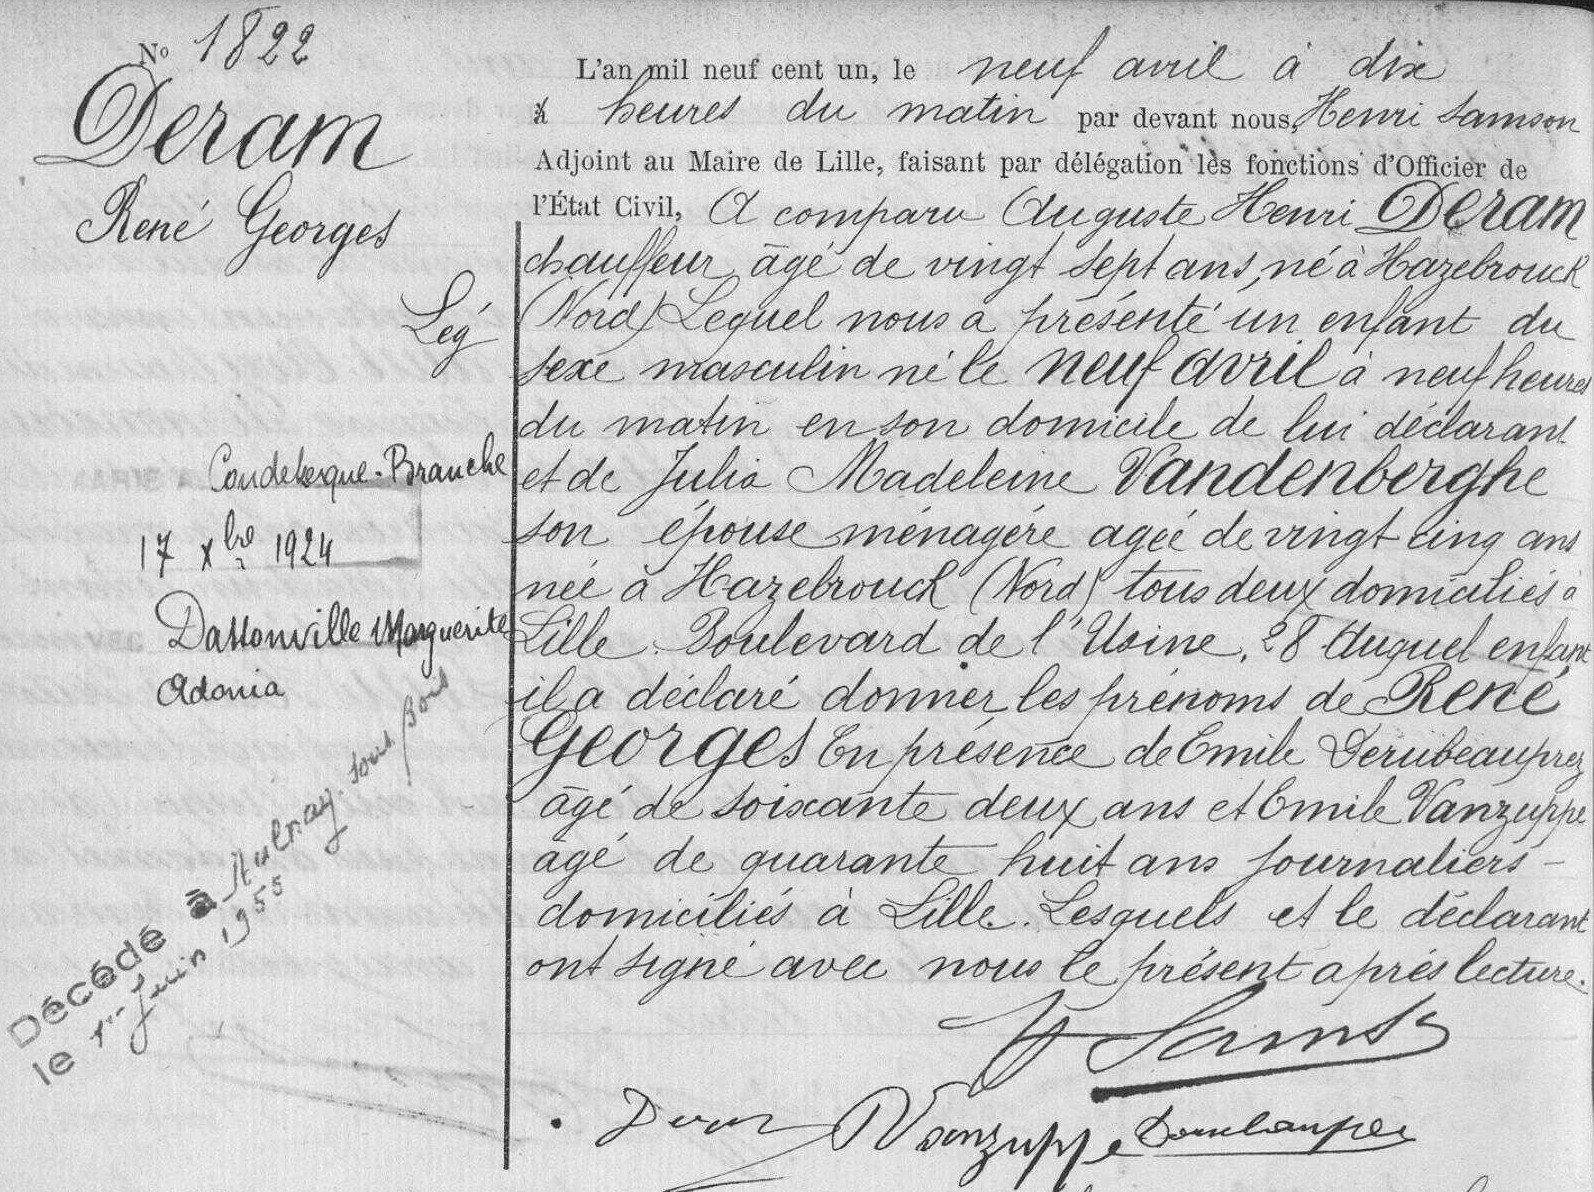 N° 1822
Deram
René Georges
Lég
Coudekerque-Branche
17 Xbre 1924
Dassonville Marguerite
Adonia
Décédé à Aulnay-sous-Bois
le 1er Juin 1955
L'an mil neuf cent un, le neuf avril à dix
à heures du matin par devant nous, Henri Samson
Adjoint au Maire de Lille, faisant par délégation les fonctions d'Officier de
l'État Civil, A comparu Auguste Henri Deram
chauffeur âgé de vingt sept ans, né à Hazebrouck
(Nord) Lequel nous a présenté un enfant du
sexe masculin né le neuf avril à neuf heures
du matin en son domicile de lui déclarant
et de Julia Madeleine Vandenberghe
son épouse ménagère agée de vingt cinq ans
née à Hazebrouck (Nord) tous deux domiciliés à
Lille. Boulevard de l'Usine, 28 Auquel enfant
il a déclaré donner les prénoms de René
Georges En présence de Emile Derubeauprez
âgé de soixante deux ans et Emile Vanzuppe
âgé de quarante huit ans journaliers –
domiciliés à Lille. Lesquels et le déclarant
ont signé avec nous le présent après lecture.
Deram Vanzuppe